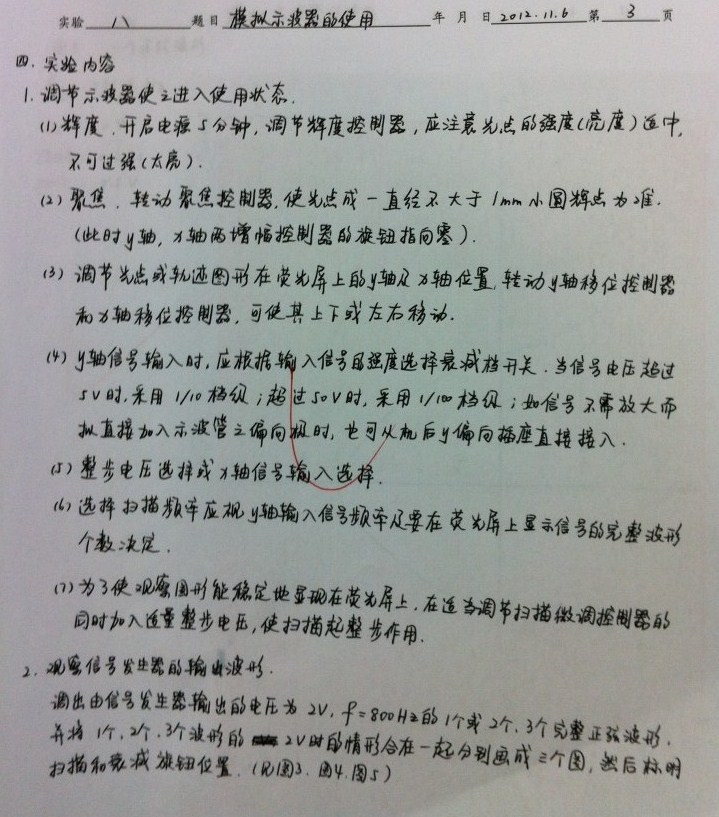 实验 11 题目 模拟示波器的使用 年 月 日 2012.11.6 第 3 页
四. 实验内容
1. 调节示波器使之进入使用状态.
(1) 辉度. 开启电源5分钟, 调节辉度控制器, 应注意光点的强度(亮度)适中,
不可过强(太亮).
(2) 聚焦. 转动聚焦控制器, 使光点成一直径不大于1mm小圆辉点为准.
(此时y轴, x轴两增幅控制器的旋钮指向零).
(3) 调节光点或轨迹图形在荧光屏上的y轴及x轴位置, 转动y轴移位控制器
和x轴移位控制器, 可使其上下或左右移动.
(4) y轴信号输入时, 应根据输入信号的强度选择衰减档开关. 当信号电压超过
5V时, 采用1/10档级; 超过50V时, 采用1/100档级; 如信号不需放大而
拟直接加入示波管之偏向极时, 也可从机后y偏向插座直接接入.
(5) 整步电压选择或x轴信号输入选择.
(6) 选择扫描频率应视y轴输入信号频率及要在荧光屏上显示信号的完整波形
个数决定.
(7) 为了使观察图形能稳定地显现在荧光屏上, 在适当调节扫描微调控制器的
同时加入适量整步电压, 使扫描起整步作用.
2. 观察信号发生器的输出波形.
调出由信号发生器输出的电压为2V, f=800Hz的1个或2个、3个完整正弦波形.
并将1个、2个、3个波形的 2V时的情形合在一起分别画成三个图, 然后标明
扫描和衰减旋钮位置. (见图3. 图4. 图5)